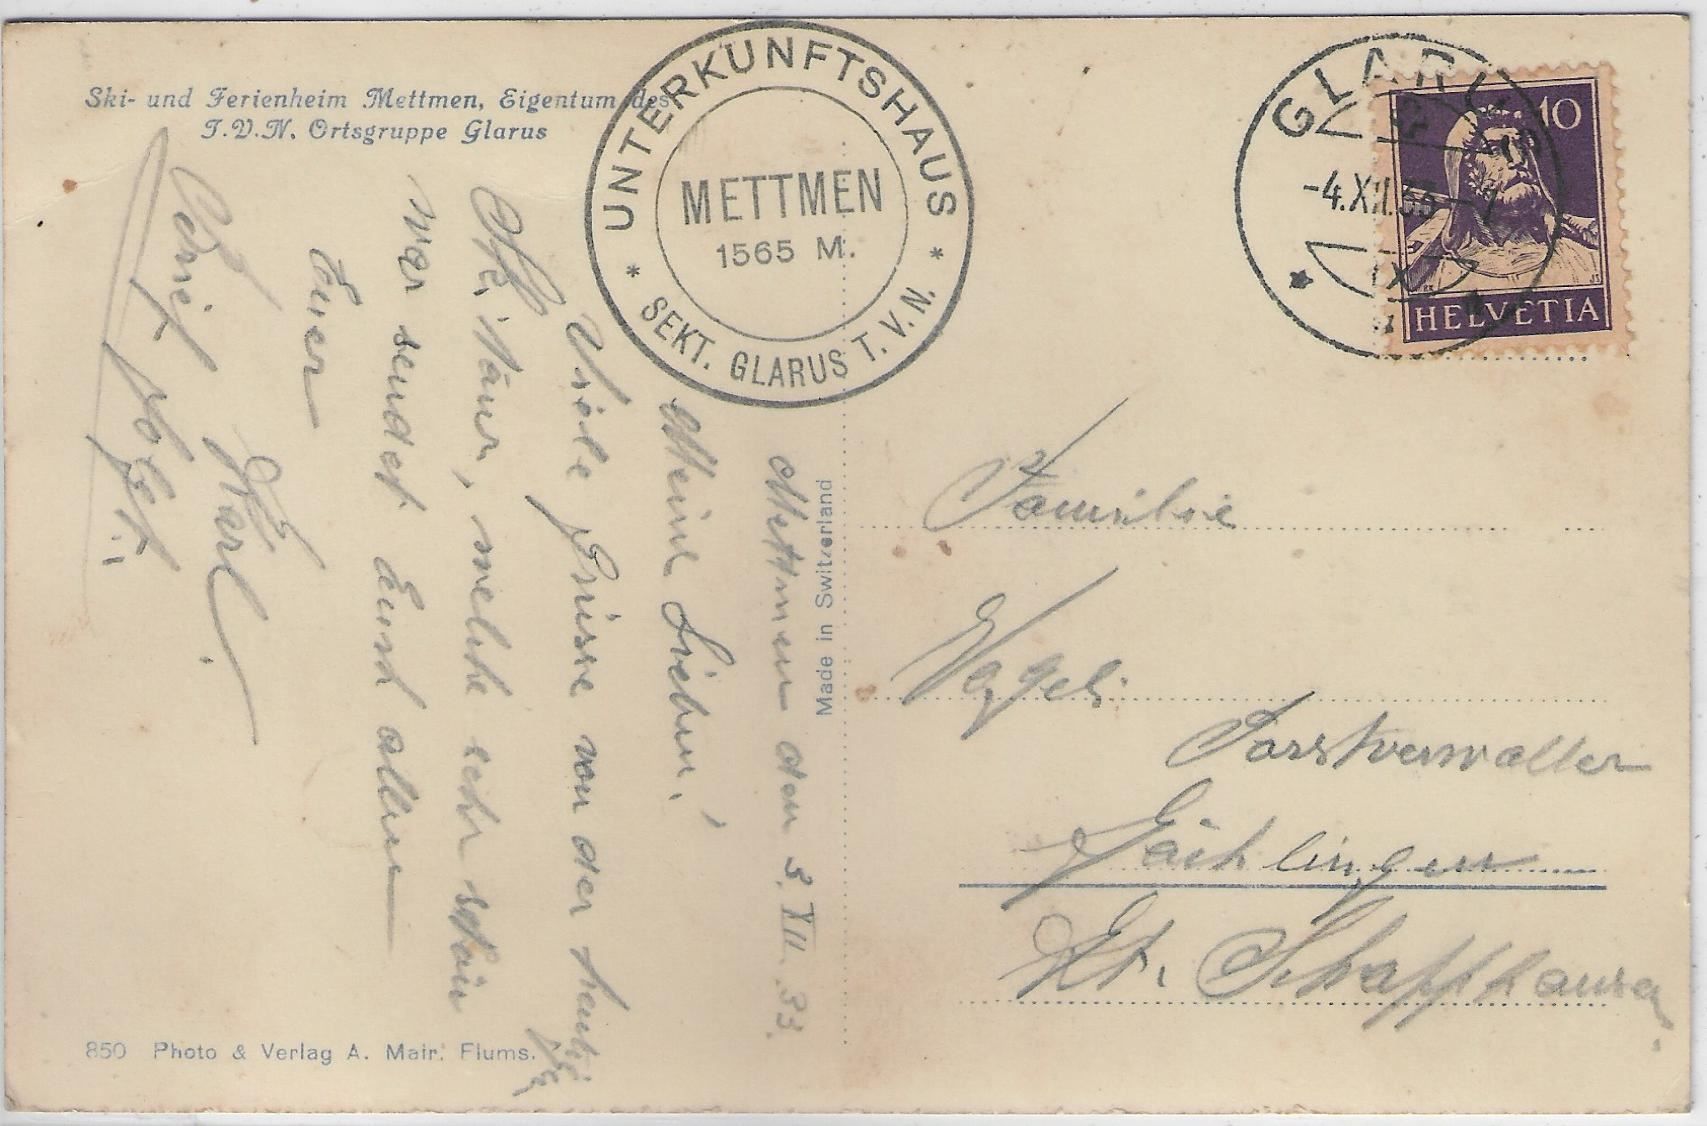 Ski- und Ferienheim Mettmen, Eigentum des
T.V.N. Ortsgruppe Glarus
UNTERKUNFTSHAUS
METTMEN
1565 M.
* SEKT. GLARUS T.V.N. *
GLARUS
-4.XII.33
10
HELVETIA
Mettmen den 3. XII. 33.
Meine Lieben!
Viele Grüsse von der heutigen
Ski Tour, welche sehr schön
war sendet Euch allen
Euer
Karl
Made in Switzerland
Familie
Vogeli
Forstverwalter
Gächlingen
Kt. Schaffhausen.
850 Photo & Verlag A. Mair. Flums.